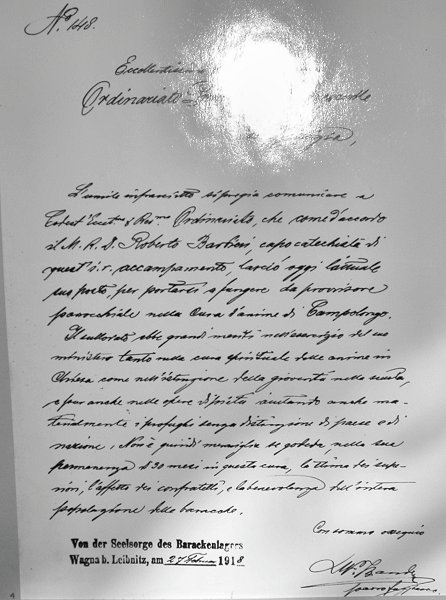 No 148.
Eccellentissimo
Ordinariato
L'umile infrascritto si pregia comunicare a
Codest' Ecc. & Rev. Ordinariato, che come d'accordo
il M. R. D. Roberto Barbieri, capo catechista di
quest' i. r. accampamento, lasciò oggi l'attuale
suo posto, per portarsi a fungere da provvisore
parrocchiale nella Cura d'anime di Campolongo.
Il sullodato ebbe grandi meriti nell'esercizio del suo
ministero tanto nella cura spirituale delle anime in
Chiesa come nell'istruzione della gioventù nella scuola,
e pur anche nelle opere di pietà aiutando anche ma-
terialmente i profughi senza distinzione di paese e di
nazione. Non è quindi meraviglia se godeva, nella sua
permanenza di 30 mesi in questa cura, la stima dei supe-
riori, l'affetto dei confratelli, e la benevolenza dell'intera
popolazione delle baracche.
Con sommo ossequio
Von der Seelsorge des Barackenlagers
Wagna b. Leibnitz, am 27 Februar 1918